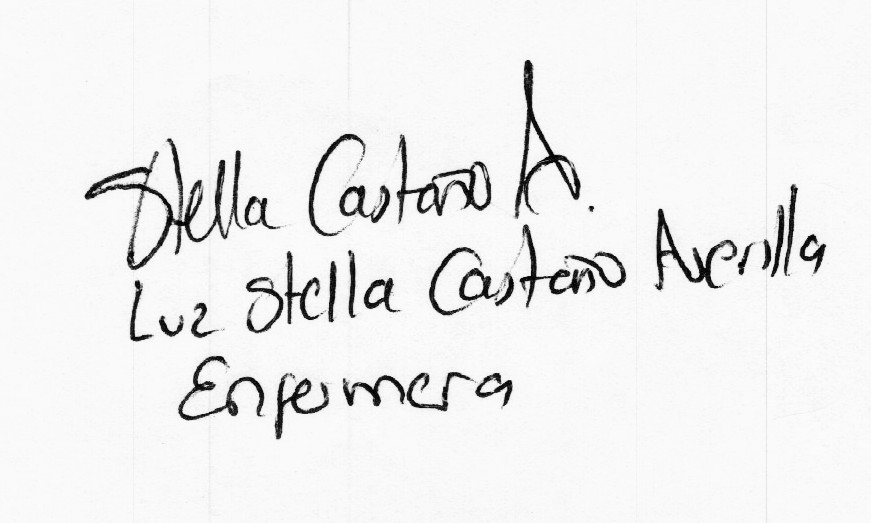 Stella Castaño A.
Luz Stella Castaño Averilla
Enfermera